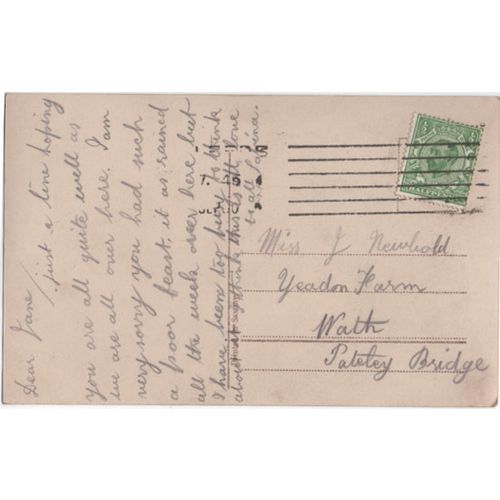 Dear Jane/ just a line hoping
you are all quite well as
we are all over here. I am
very sorry you had such
a poor feast, it as rained
all the week over here but
I have been too busy to think
about it, I think this is all
Miss J Newbold
Yeadon Farm
Wath
Pateley Bridge